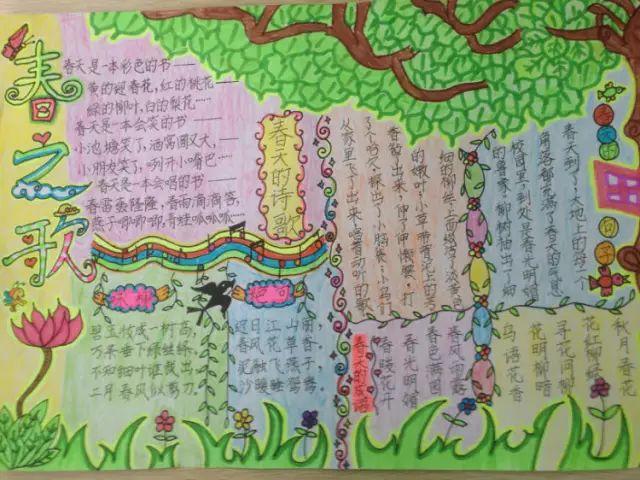 春之歌
春天是一本彩色的书——
黄的迎春花，红的桃花——
绿的柳叶，白的梨花……
春天是一本会笑的书——
小池塘笑了，酒窝圆又大，——
小朋友笑了，咧开小嘴巴…
春天是一本会唱的书——
春雷轰隆隆，春雨滴滴答，
燕子唧唧唧，青蛙呱呱呱…
春天的诗歌
咏柳
碧玉妆成一树高，
万条垂下绿丝绦。
不知细叶谁裁出，
二月春风似剪刀。
绝句
迟日江山丽，
春风花草香。
泥融飞燕子，
沙暖睡鸳鸯。
春天的句子
春天到了，大地上的每一个
角落都充满了春天的气息
校园里，到处是春光明媚
的景象，柳树抽出了细
细的柳丝，上面缀满了淡黄色
的嫩叶；小草带着
香钻了出来，伸了伸懒腰，打
了个哈欠，探出了小脑袋；小鸟们
从家里飞了出来，唱着动听的歌
秋月春花
花红柳绿
寻花问柳
花明柳暗
鸟语花香
春风雨露
春色满园
春光明媚
春暖花开
春天的成语